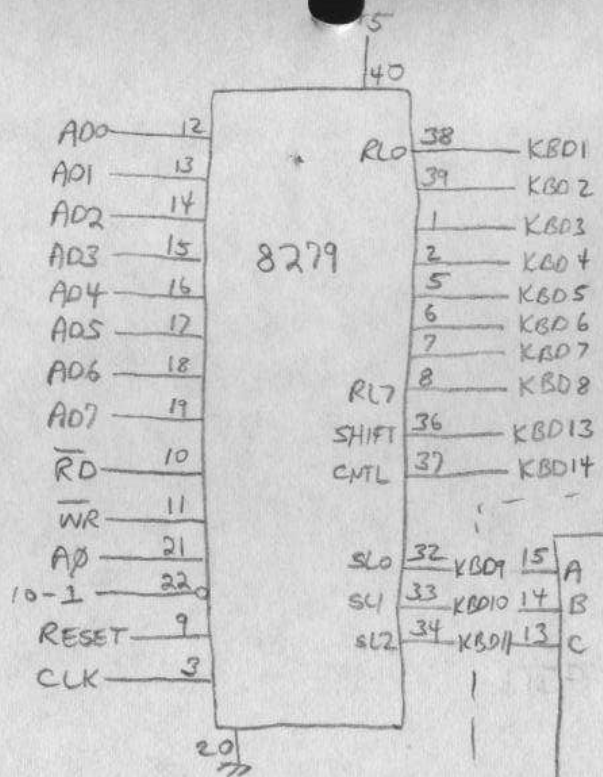 5
40
AD0 12
AD1 13
AD2 14
AD3 15
AD4 16
AD5 17
AD6 18
AD7 19
R̅D̅ 10
W̅R̅ 11
AØ 21
10-1 22
RESET 9
CLK 3
8279
RL0 38 KBD1
39 KBD2
1 KBD3
2 KBD4
5 KBD5
6 KBD6
7 KBD7
RL7 8 KBD8
SHIFT 36 KBD13
CNTL 37 KBD14
SL0 32 KBD9 15 A
SL1 33 KBD10 14 B
SL2 34 KBD11 13 C
20